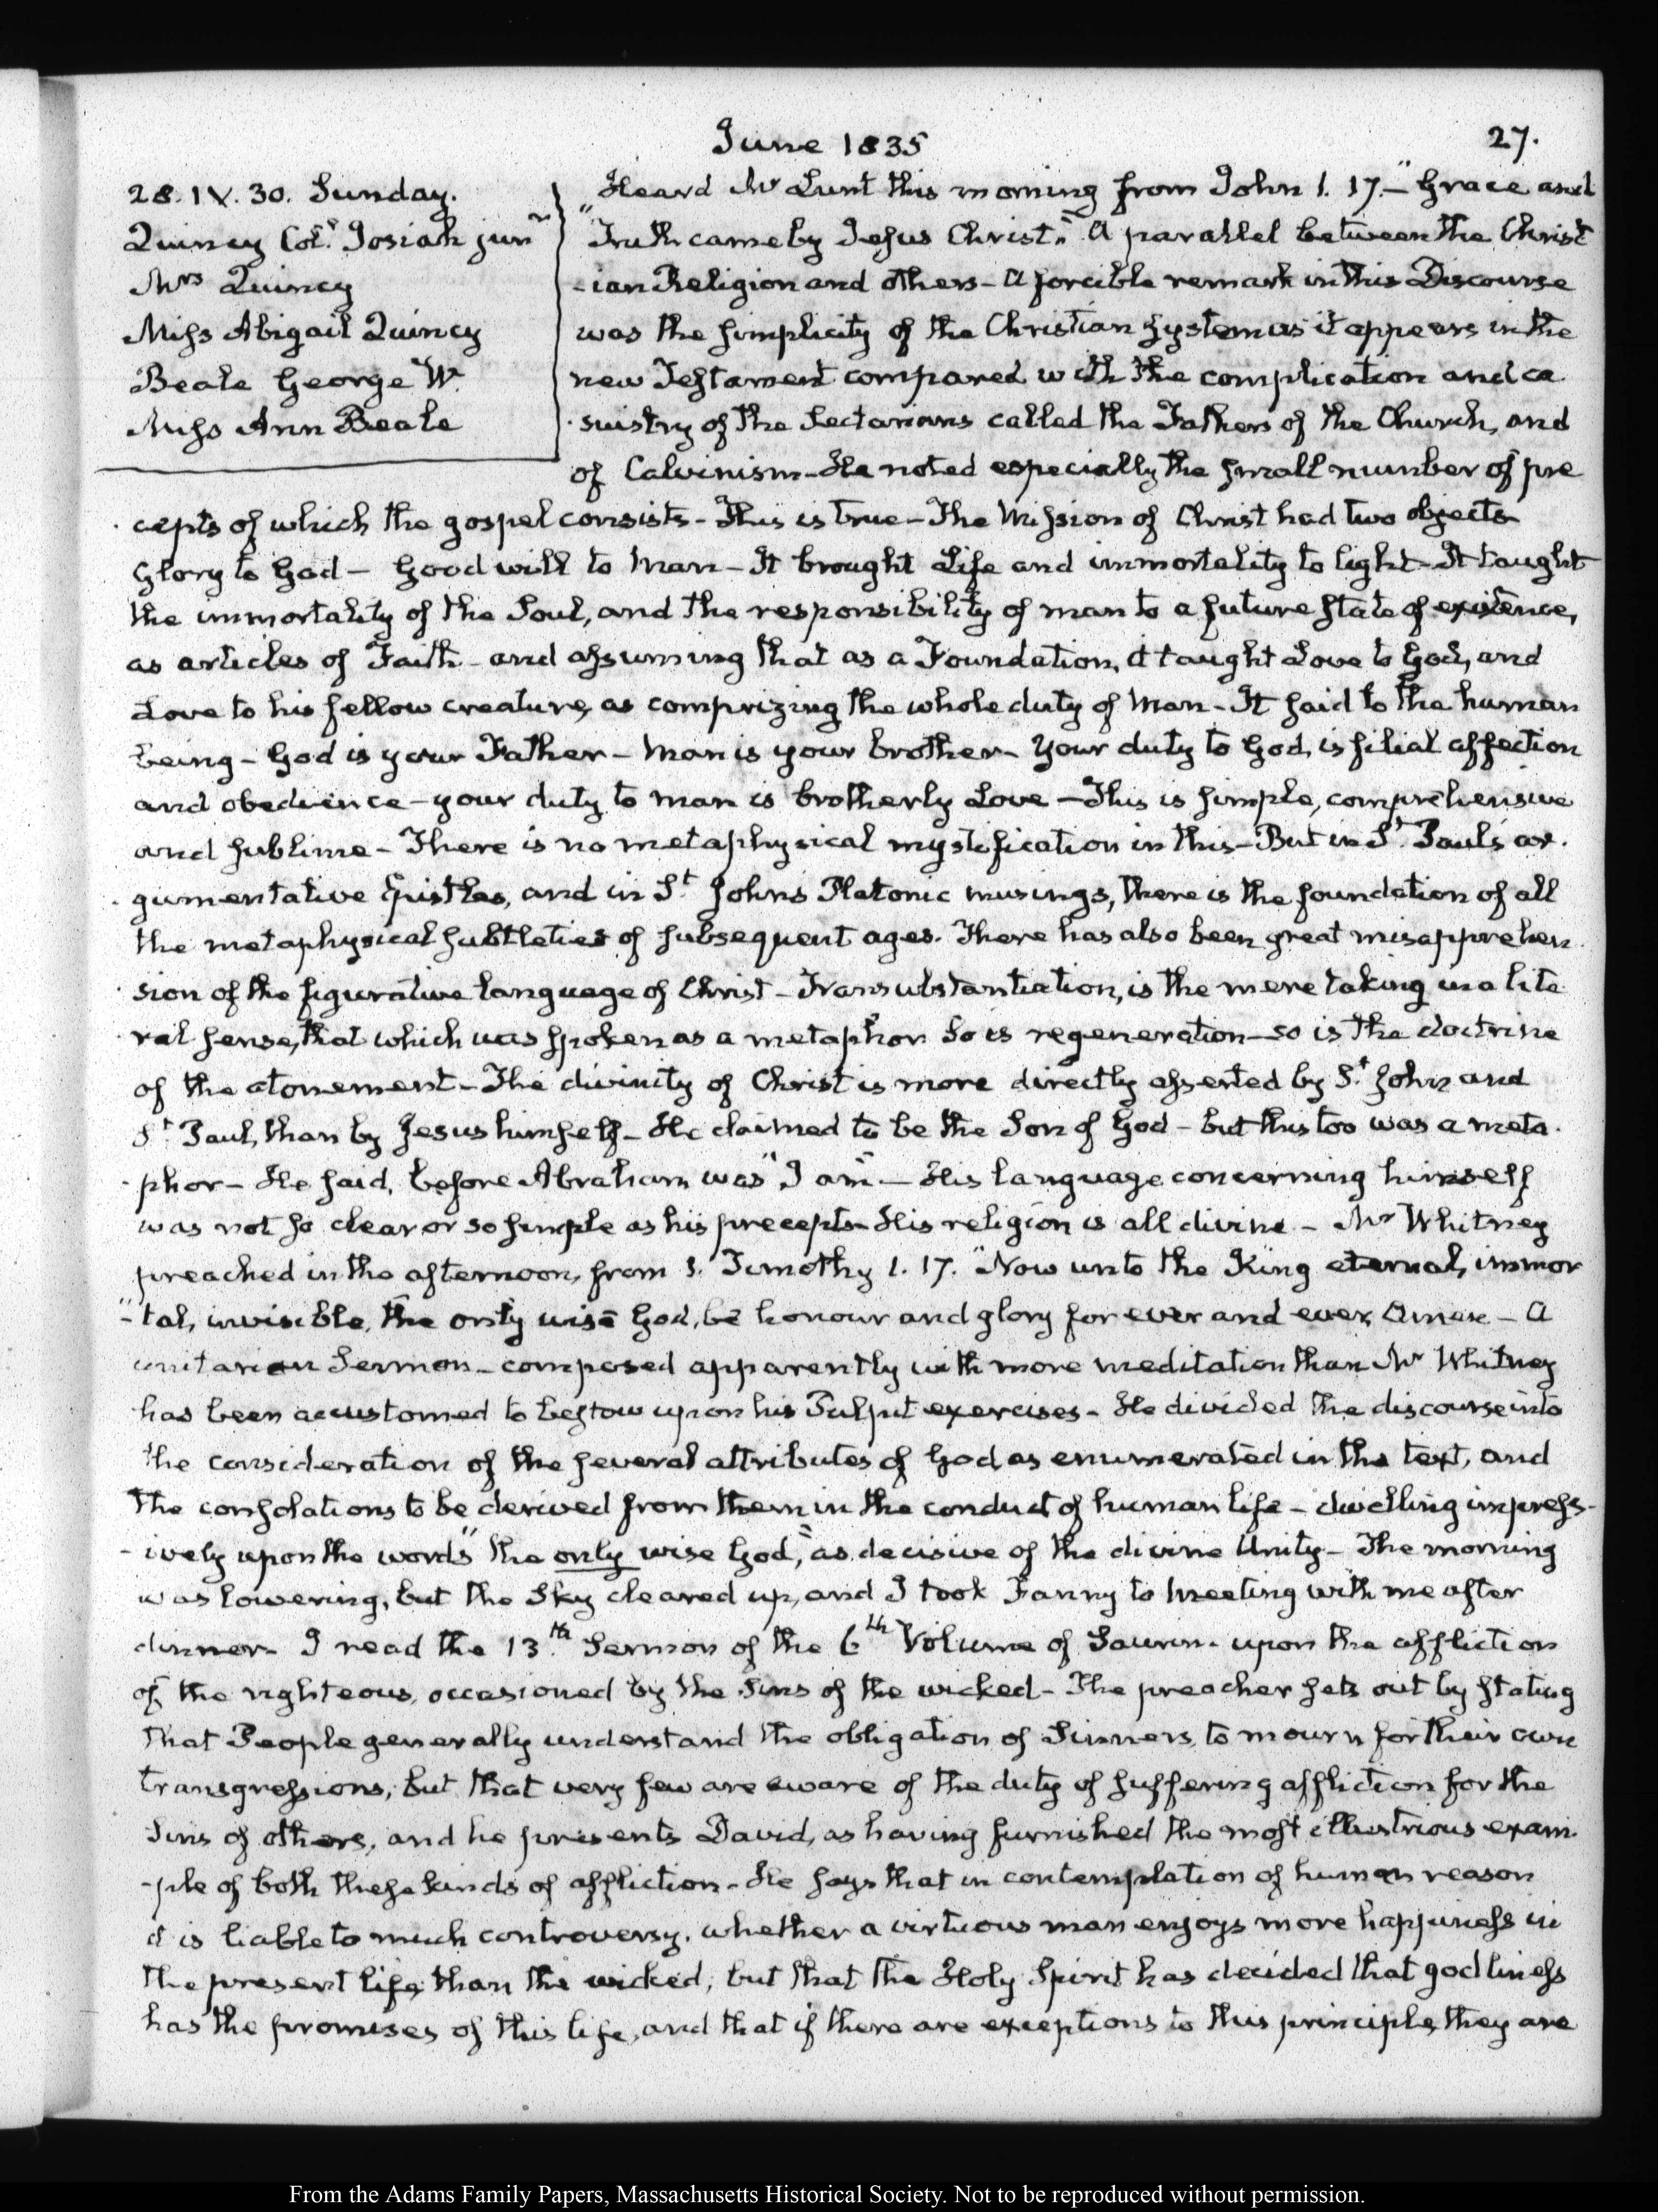 June 1835
27.
28. IV. 30. Sunday.
Quincy Col.l Josiah junr
Mrs Quincy
Miss Abigail Quincy
Beale George W.
Miss Ann Beale
Heard Mr Lunt this morning from John 1. 17.— "Grace and
"Truth came by Jesus Christ." A parallel between the Christ
-ian Religion and others— A forcible remark in this Discourse
was the simplicity of the Christian system as it appears in the
new Testament compared with the complication and ca
-suistry of the Sectarians called the Fathers of the Church, and
of Calvinism— He noted especially the small number of pre
-cepts of which the gospel consists— This is true— The Mission of Christ had two objects
Glory to God— Good will to Man— It brought Life and immortality to light— It taught
the immortality of the Soul, and the responsibility of man to a future state of existence,
as articles of Faith— and assuming that as a Foundation, it taught Love to God, and
Love to his fellow creature, as comprizing the whole duty of Man— It said to the human
being— God is your Father— Man is your brother— Your duty to God, is filial affection
and obedience— your duty to man is brotherly Love— This is simple, comprehensive
and sublime— There is no metaphysical mystification in this— But in St. Paul's ar-
-gumentative Epistles, and in St. John's Platonic musings, there is the foundation of all
the metaphysical subtleties of subsequent ages. There has also been great misapprehen-
-sion of the figurative language of Christ— Transubstantiation, is the mere taking in a lite
-ral sense, that which was spoken as a metaphor. So is regeneration— so is the doctrine
of the atonement— The divinity of Christ is more directly asserted by St. John and
St. Paul, than by Jesus himself— He claimed to be the Son of God— but this too was a meta-
-phor— He said, before Abraham was "I am"— His language concerning himself
was not so clear or so simple as his precepts— His religion is all divine— Mr Whitney
preached in the afternoon, from 1. Timothy 1. 17. "Now unto the King eternal, immor
"-tal, invisible, the only wise God, be honour and glory for ever and ever, Amen— A
unitarian Sermon— composed apparently with more meditation than Mr Whitney
has been accustomed to bestow upon his Pulpit exercises— He divided the discourse into
the consideration of the several attributes of God as enumerated in the text, and
the consolations to be derived from them in the conduct of human life— dwelling impress-
-ively upon the words "the only wise God," as decisive of the divine Unity— The morning
was lowering, but the Sky cleared up, and I took Fanny to Meeting with me after
dinner— I read the 13.th Sermon of the 6th Volume of Saurin. upon the affliction
of the righteous, occasioned by the Sins of the wicked— The preacher sets out by stating
that People generally understand the obligation of Sinners, to mourn for their own
transgressions; but that very few are aware of the duty of suffering affliction for the
Sins of others, and he presents David, as having furnished the most illustrious exam-
-ple of both these kinds of affliction— He says that in contemplation of human reason
it is liable to much controversy, whether a virtuous man enjoys more happiness in
the present life, than the wicked; but that the Holy Spirit has decided that godliness
has the promises of this life, and that if there are exceptions to this principle, they are
From the Adams Family Papers, Massachusetts Historical Society. Not to be reproduced without permission.